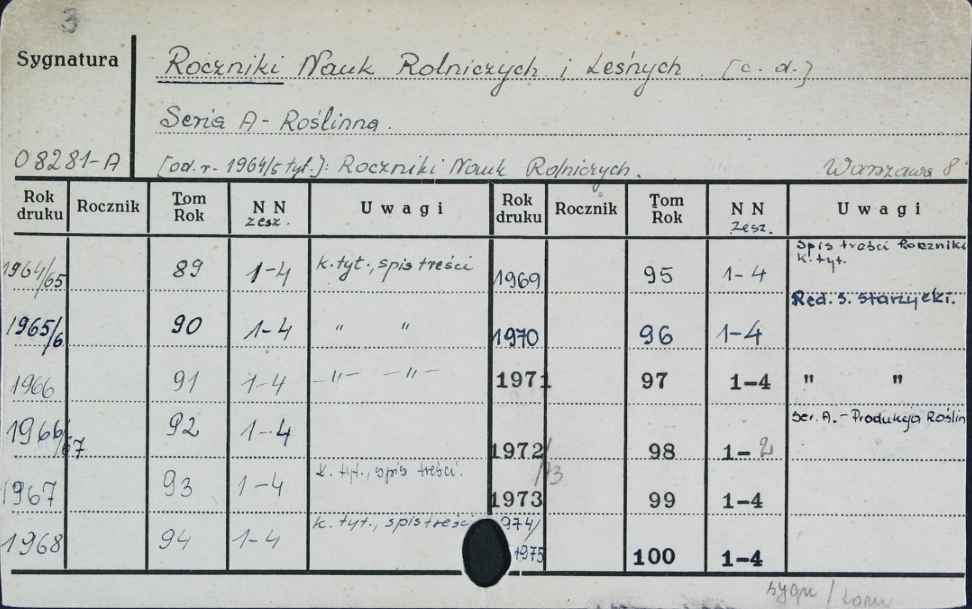 3
Sygnatura Roczniki Nauk Rolniczych i Leśnych [c. d.]
Seria A - Roślinna.
08281-A [od. r. 1964/5 tyt.]: Roczniki Nauk Rolniczych. Warszawa 8°
Rok druku Rocznik Tom Rok N N zesz. Uwagi Rok druku Rocznik Tom Rok N N zesz. Uwagi
1964/65 89 1-4 k. tyt., spis treści 1969 95 1-4 Spis treści Rocznika k. tyt.
1965/6 90 1-4 " " 1970 96 1-4 Red. S. Starzycki.
1966 91 1-4 -"- -"- 1971 97 1-4 " "
1966/67 92 1-4 1972/73 98 1-2 Ser. A. - Produkcja Roślin
1967 93 1-4 k. tyt., spis treści. 1973 99 1-4
1968 94 1-4 k. tyt., spis treści 1974/1975 100 1-4
sygn /